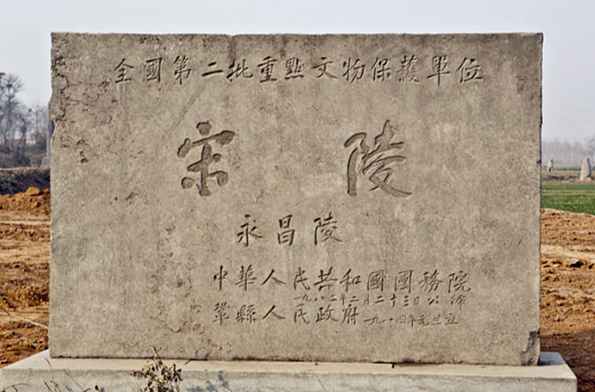 全國第二批重點文物保護單位
宋陵
永昌陵
中華人民共和國國務院
一九八二年二月二十三日公佈
鞏縣人民政府一九八四年元旦立